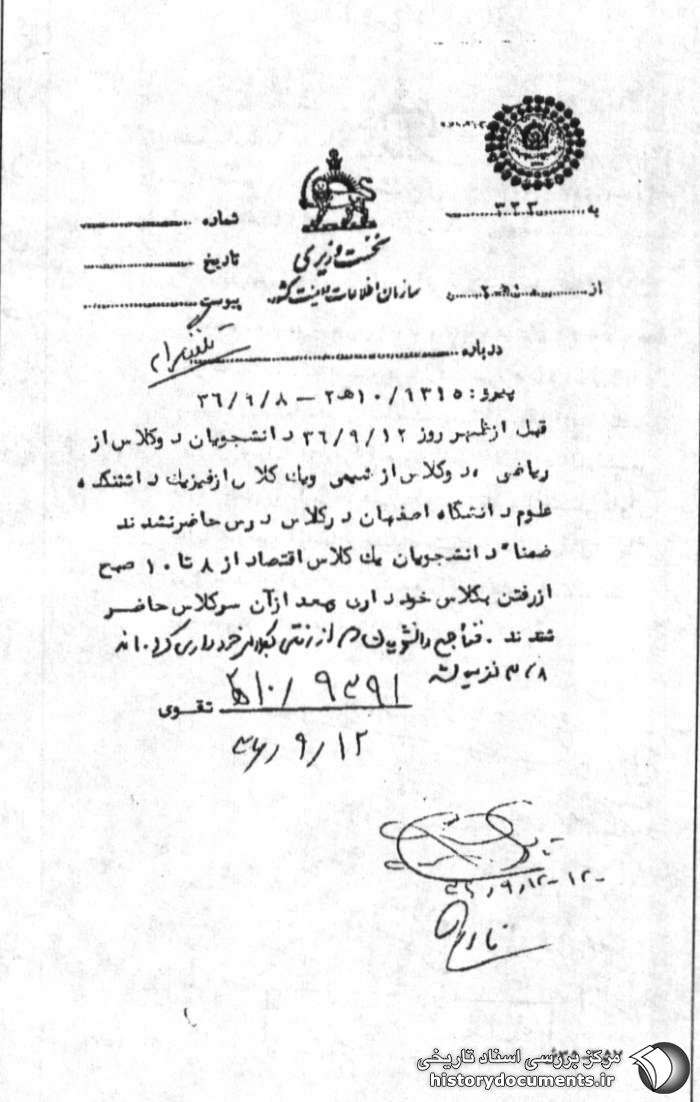 به ۳۲۲
شماره
نخست وزیری
تاریخ
سازمان اطلاعات و امنیت کشور
از
پیوست
تلفنگرام
درباره
پیرو: ۹۳۱۵/ ۱۰هـ۲ – ۳۶/۹/۸
قبل ازظهر روز ۳۶/۹/۱۲ دانشجویان دوکلاس از
ریاضی ، دوکلاس از شیمی ویک کلاس ازفیزیک دانشکده
علوم دانشگاه اصفهان درکلاس درس حاضرنشدند
ضمناً دانشجویان یک کلاس اقتصاد از ۸ تا ۱۰ صبح
ازرفتن بکلاس خودداری وبعد ازآن سرکلاس حاضر
شدند . دانشجویان از رفتن خودداری کرده اند
۹۳۹۱ /۱۰هـ۲ تقوی
۳۶/۹/۱۲
۳۶/۹/۱۲
مرکز بررسی اسناد تاریخی
historydocuments.ir